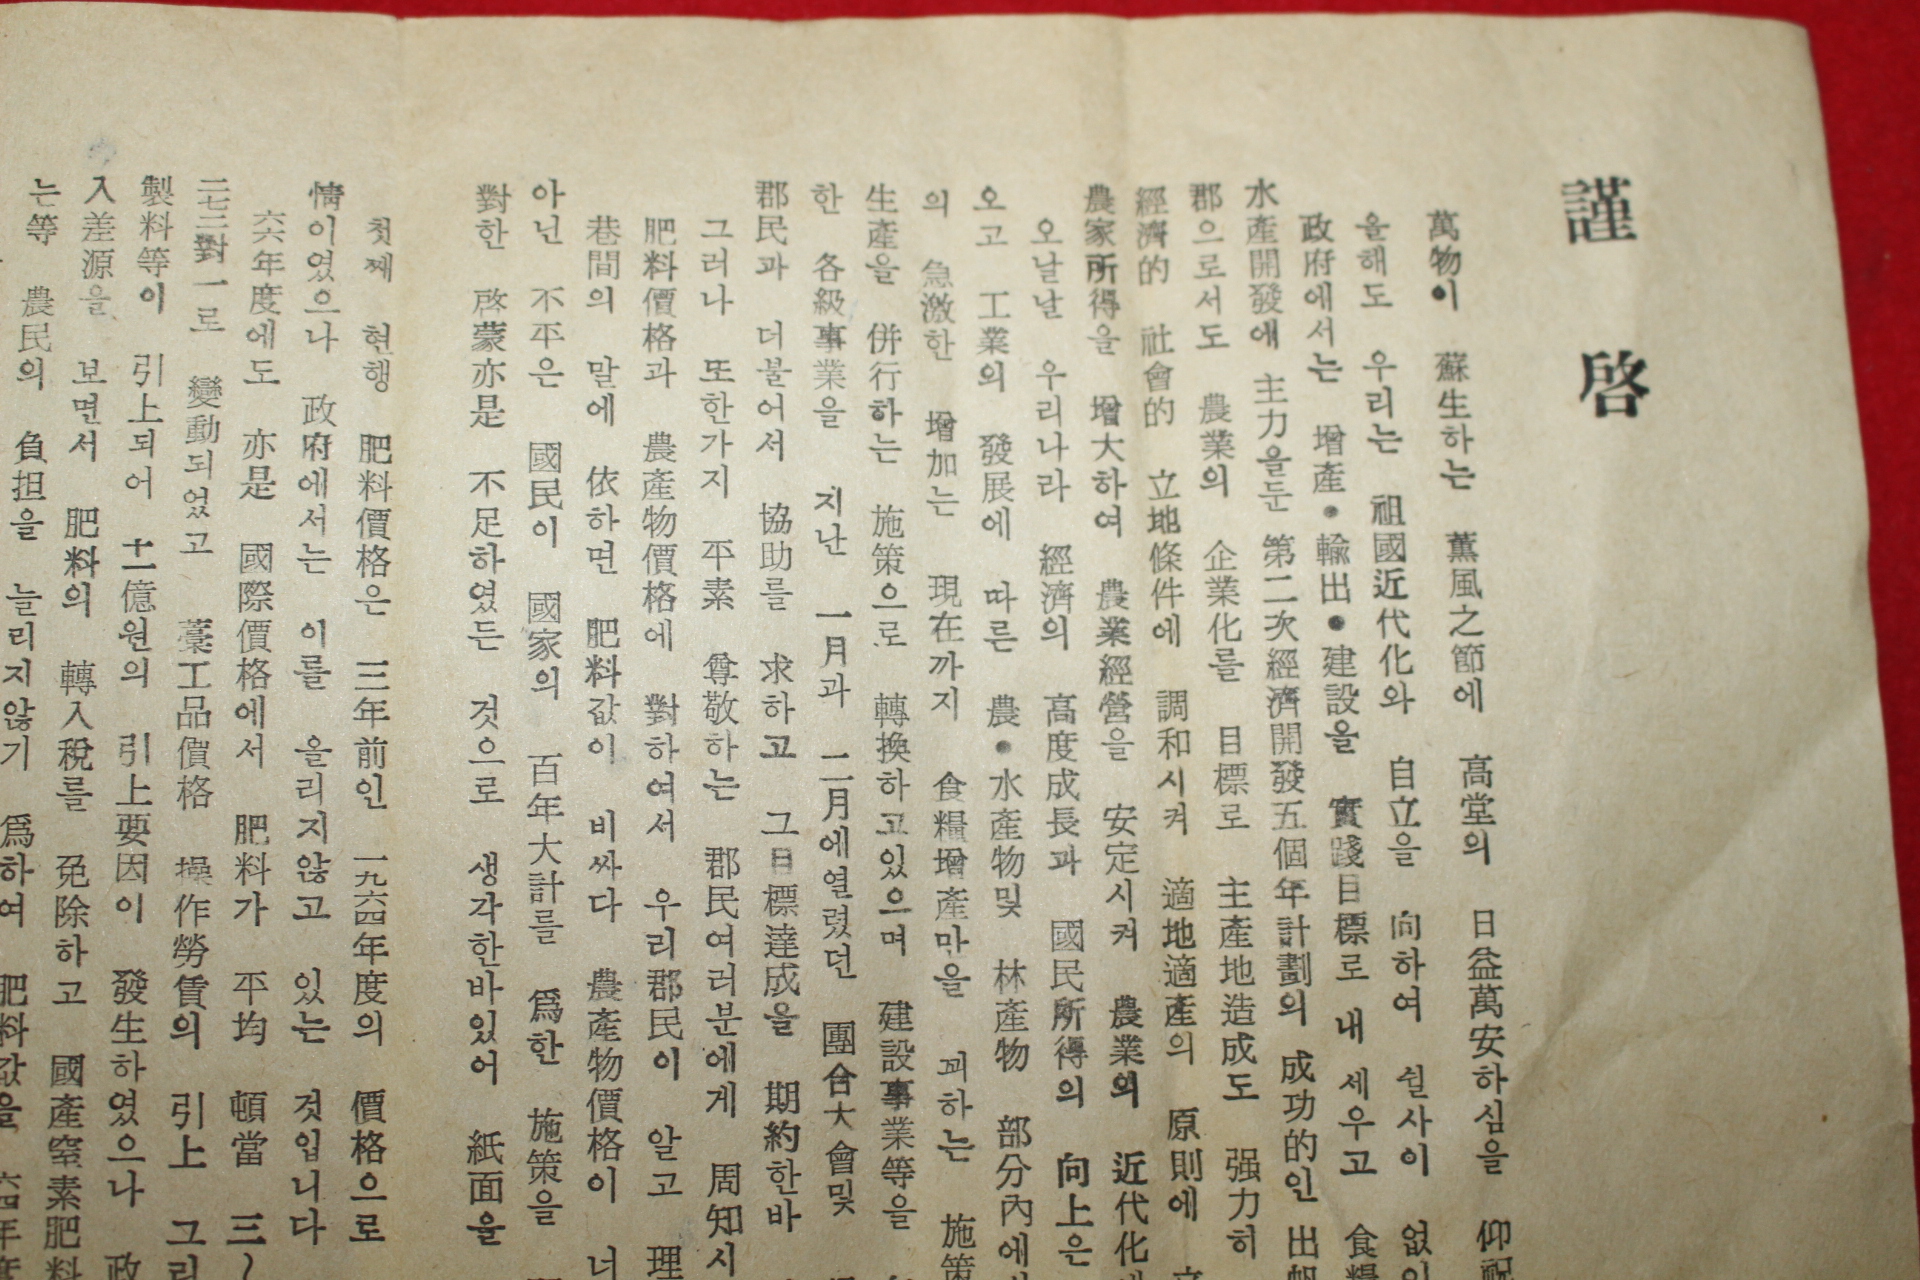 謹啓
萬物이 蘇生하는 薰風之節에 高堂의 日益萬安하심을 仰祝
올해도 우리는 祖國近代化와 自立을 向하여 쉴사이 없이
政府에서는 增產•輸出•建設을 實踐目標로 내 세우고 食糧
水產開發에 主力을둔 第二次經濟開發五個年計劃의 成功的인 出帆
郡으로서도 農業의 企業化를 目標로 主產地造成도 强力히
經濟的 社會的 立地條件에 調和시켜 適地適產의 原則에
農家所得을 增大하여 農業經營을 安定시켜 農業의 近代化
오날날 우리나라 經濟의 高度成長과 國民所得의 向上은
오고 工業의 發展에 따른 農•水產物및 林產物 部分內에
의 急激한 增加는 現在까지 食糧增產만을 꾀하는 施策
生產을 併行하는 施策으로 轉換하고있으며 建設事業等을
한 各級事業을 지난 一月과 二月에열렸던 團合大會및
郡民과 더불어서 協助를 求하고 그目標達成을 期約한바
그러나 또한가지 平素 尊敬하는 郡民여러분에게 周知시
肥料價格과 農產物價格에 對하여서 우리郡民이 알고 理
巷間의 말에 依하면 肥料값이 비싸다 農產物價格이 너
아닌 不平은 國民이 國家의 百年大計를 爲한 施策을
對한 啓蒙亦是 不足하였든 것으로 생각한바있어 紙面을
첫째 현행 肥料價格은 三年前인 一九六四年度의 價格으로
情이였으나 政府에서는 이를 올리지않고 있는 것입니다
六六年度에도 亦是 國際價格에서 肥料가 平均 頓當 三~
二七二對一로 變動되었고 藁工品價格 操作勞賃의 引上 그리
製料等이 引上되어 十一億원의 引上要因이 發生하였으나 政
入差源을 보면서 肥料의 轉入稅를 免除하고 國產窒素肥料
는等 農民의 負担을 늘리지않기 爲하여 肥料값을 六四年度